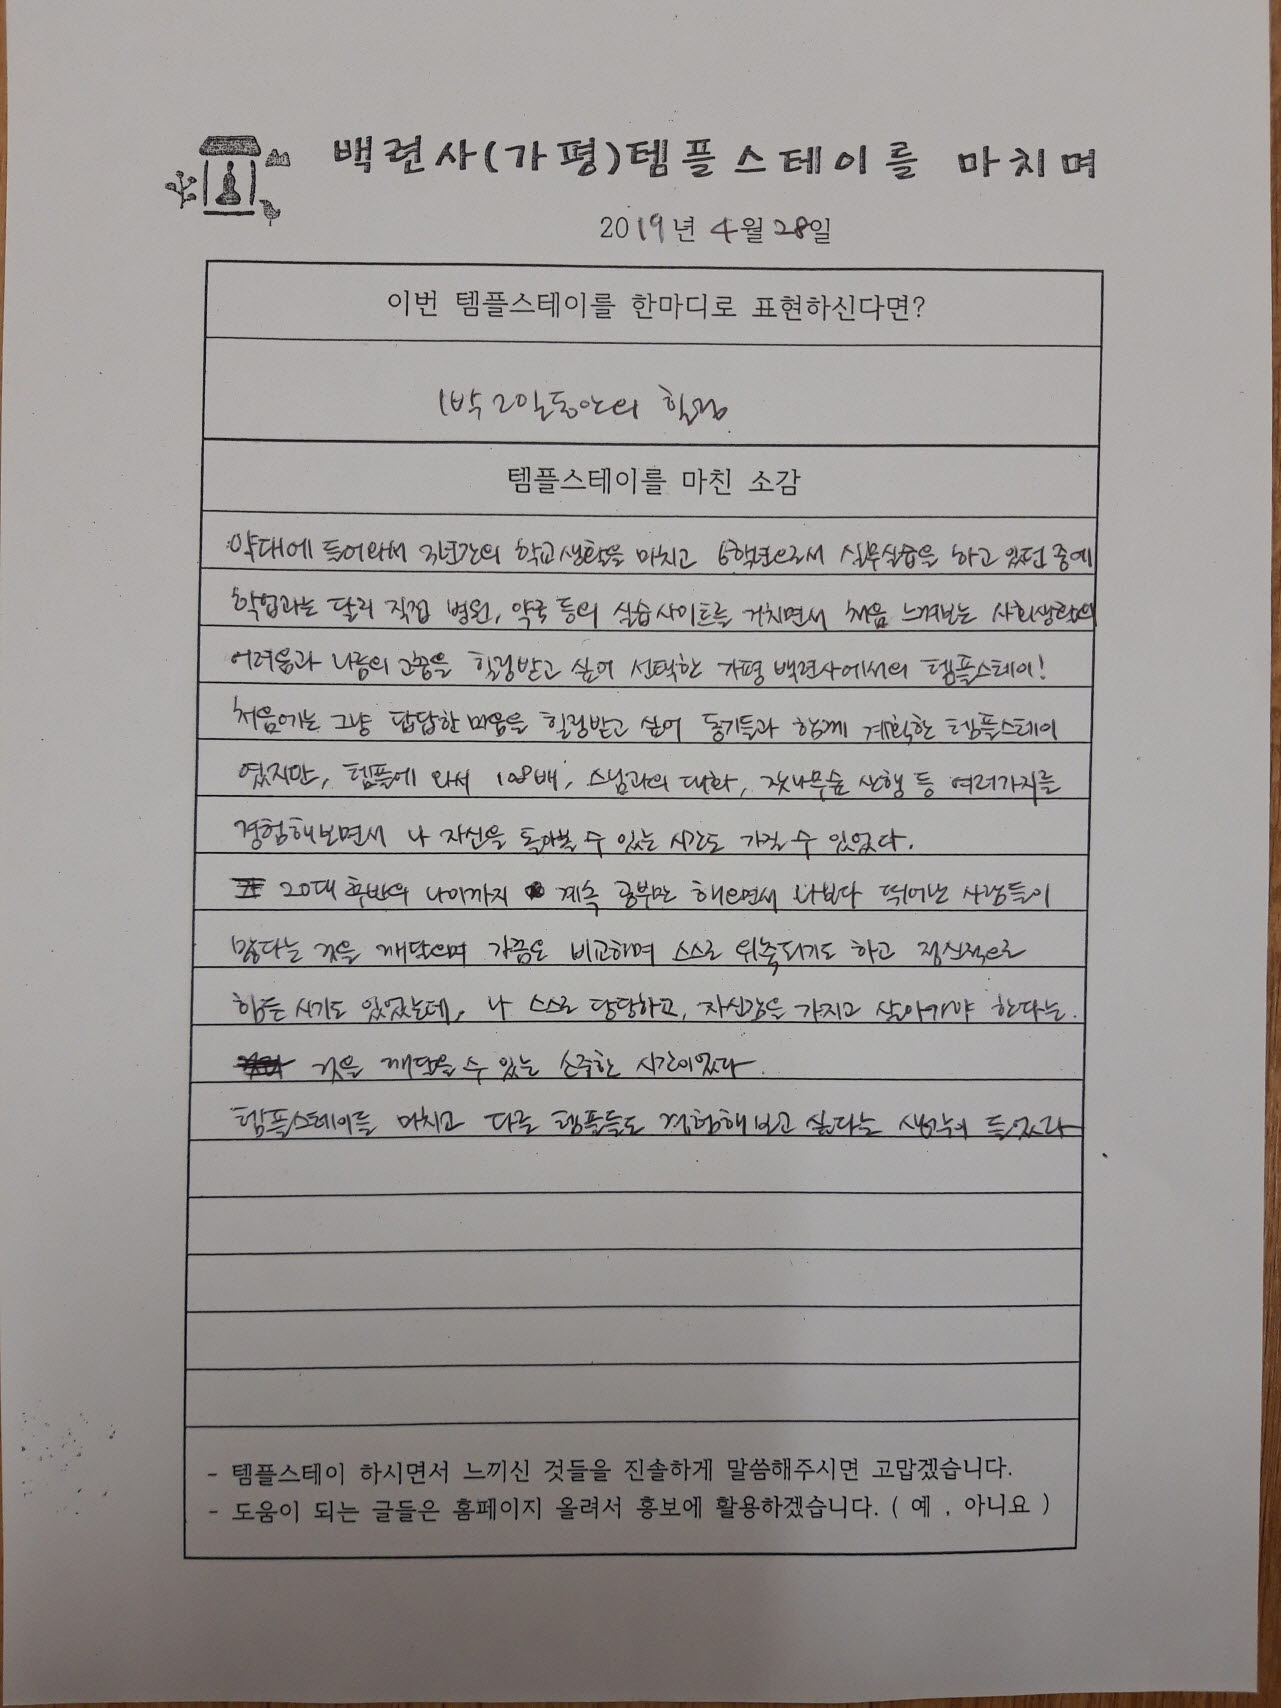 백련사(가평)템플스테이를 마치며
2019년 4월 28일
이번 템플스테이를 한마디로 표현하신다면?
1박 2일동안의 힐링
템플스테이를 마친 소감
약대에 들어와서 3년간의 학교생활을 마치고 6학년으로서 실무실습을 하고 있던 중에
학업과는 달리 직접 병원, 약국 등의 실습사이트를 거치면서 처음 느껴보는 사회생활의
어려움과 나름의 고충을 힐링받고 싶어 선택한 가평 백련사에서의 템플스테이!
처음에는 그냥 답답한 마음을 힐링받고 싶어 동기들과 함께 계획한 템플스테이
였지만, 템플에 와서 108배, 스님과의 대화, 잣나무숲 산행 등 여러가지를
경험해보면서 나 자신을 돌아볼 수 있는 시간도 가질 수 있었다.
20대 후반의 나이까지 계속 공부만 해오면서 나보다 뛰어난 사람들이
많다는 것을 깨달으며 가끔은 비교하며 스스로 위축되기도 하고 정신적으로
힘든 시기도 있었는데, 나 스스로 당당하고, 자신감을 가지고 살아가야 한다는
것을 깨달을 수 있는 소중한 시간이었다.
템플스테이를 마치고 다른 템플들도 경험해보고 싶다는 생각이 들었다
- 템플스테이 하시면서 느끼신 것들을 진솔하게 말씀해주시면 고맙겠습니다.
- 도움이 되는 글들은 홈페이지 올려서 홍보에 활용하겠습니다. ( 예 , 아니요 )